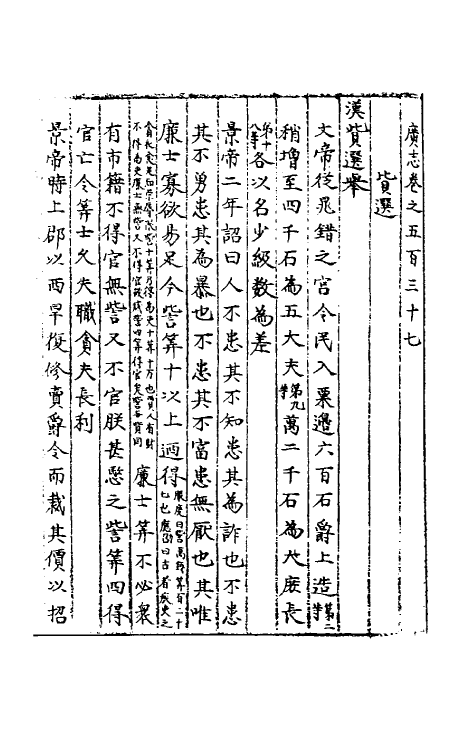 廣志卷之五百三十七
貲選
漢貲選舉
文帝從晁錯之言令民入粟邊六百石爵上造第二等
稍增至四千石為五大夫第九等萬二千石為大庶長
第十八等各以名少級數為差
景帝二年詔曰人不患其不知患其為詐也不患
其不勇患其為暴也不患其不富患無厭也其唯
廉士寡欲易足今訾筭十以上廼得服虔曰訾萬錢筭百二十七也應劭曰古者疾吏之
貪衣食足知榮辱限訾十筭乃得為吏十筭十萬也賈人有財
不得為吏廉士無訾又不得官故減訾四筭得官矣訾與貲同廉士筭不必衆
有市籍不得官無訾又不官朕甚愍之訾筭四得
官亡令筭士久失職貪夫長利
景帝時上郡以西旱復修賣爵令而裁其價以招